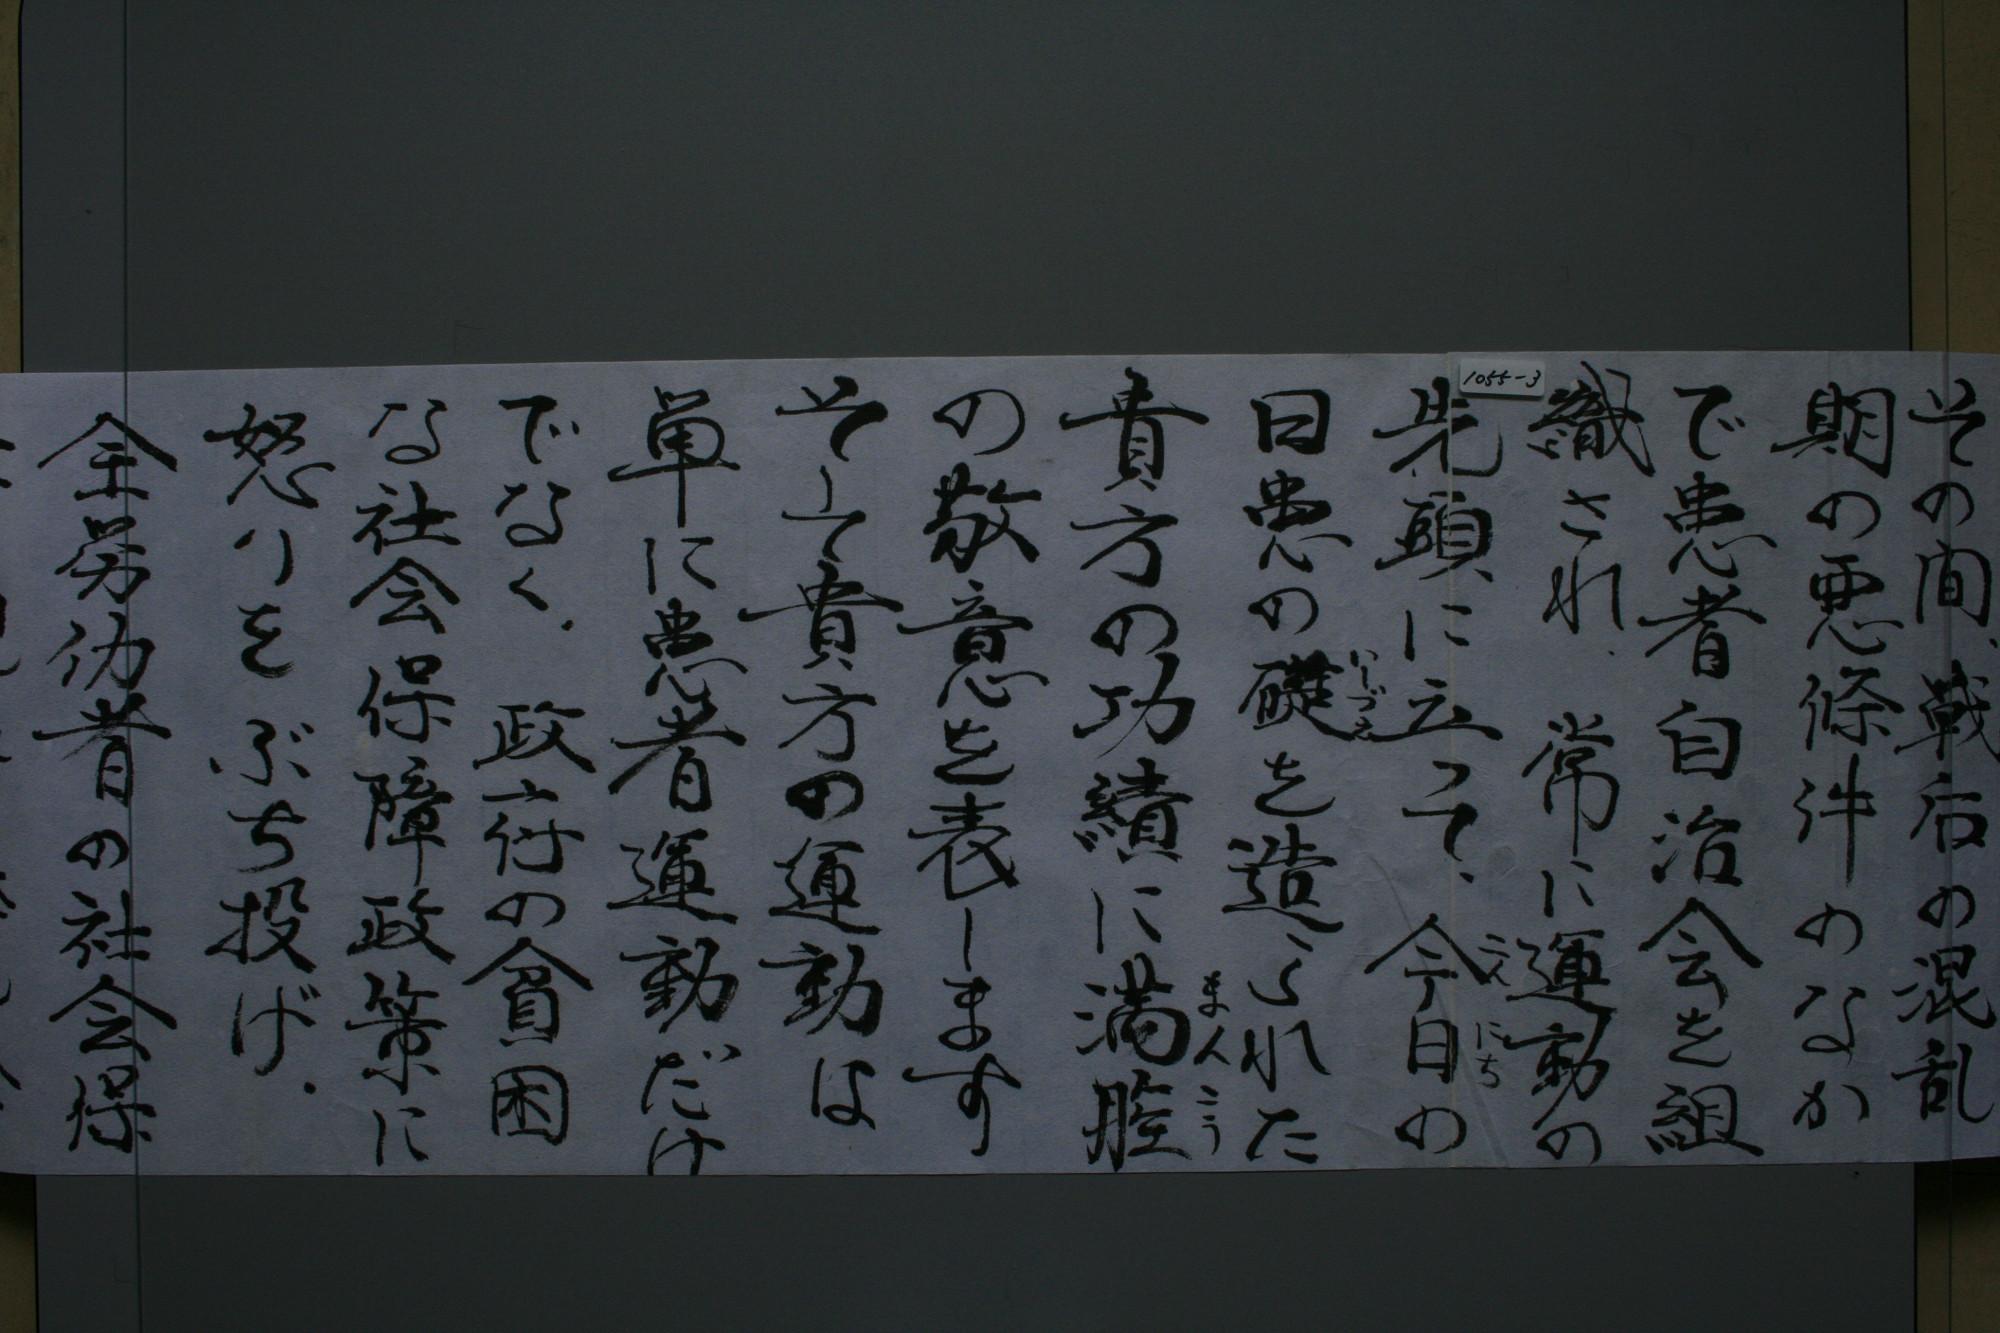 その間、戦后の混乱
期の悪條件のなか
で患者自治会を組
織され、常に運動の
先頭に立って、今日の
こん
にち
日患の礎を造られた
いしづえ
貴方の功績に満腔
まんこう
の敬意を表します
そして貴方の運動は
單に患者運動だけ
でなく、政府の貧困
な社会保障政策に
怒りをぶち投げ、
全労仂者の社会保
1055-3